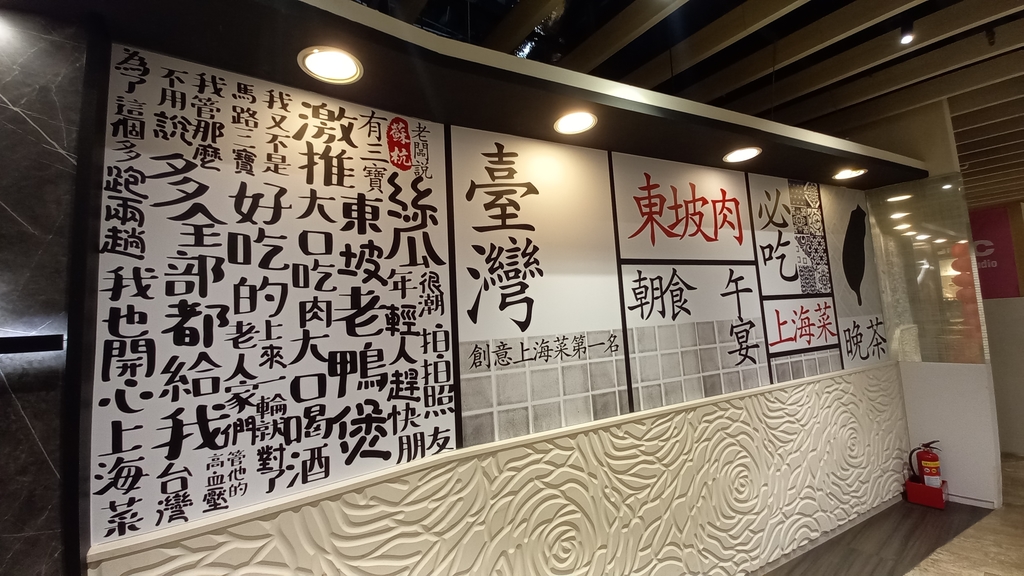 老闆說
蘇杭
絲瓜
很潮拍拍照友
年輕人趕快朋
有三寶
東坡老鴨煲
激推
大口吃肉大口喝酒
我又不是
的上來一輪就對了
馬路三寶
好吃的老人家們
管他的
高血壓
我管那麼
全部都給我台灣
不用說多多
為了這個多跑兩趟
我也開心上海菜
臺灣
創意上海菜第一名
東坡肉
朝食
午宴
必吃
上海菜
晚茶